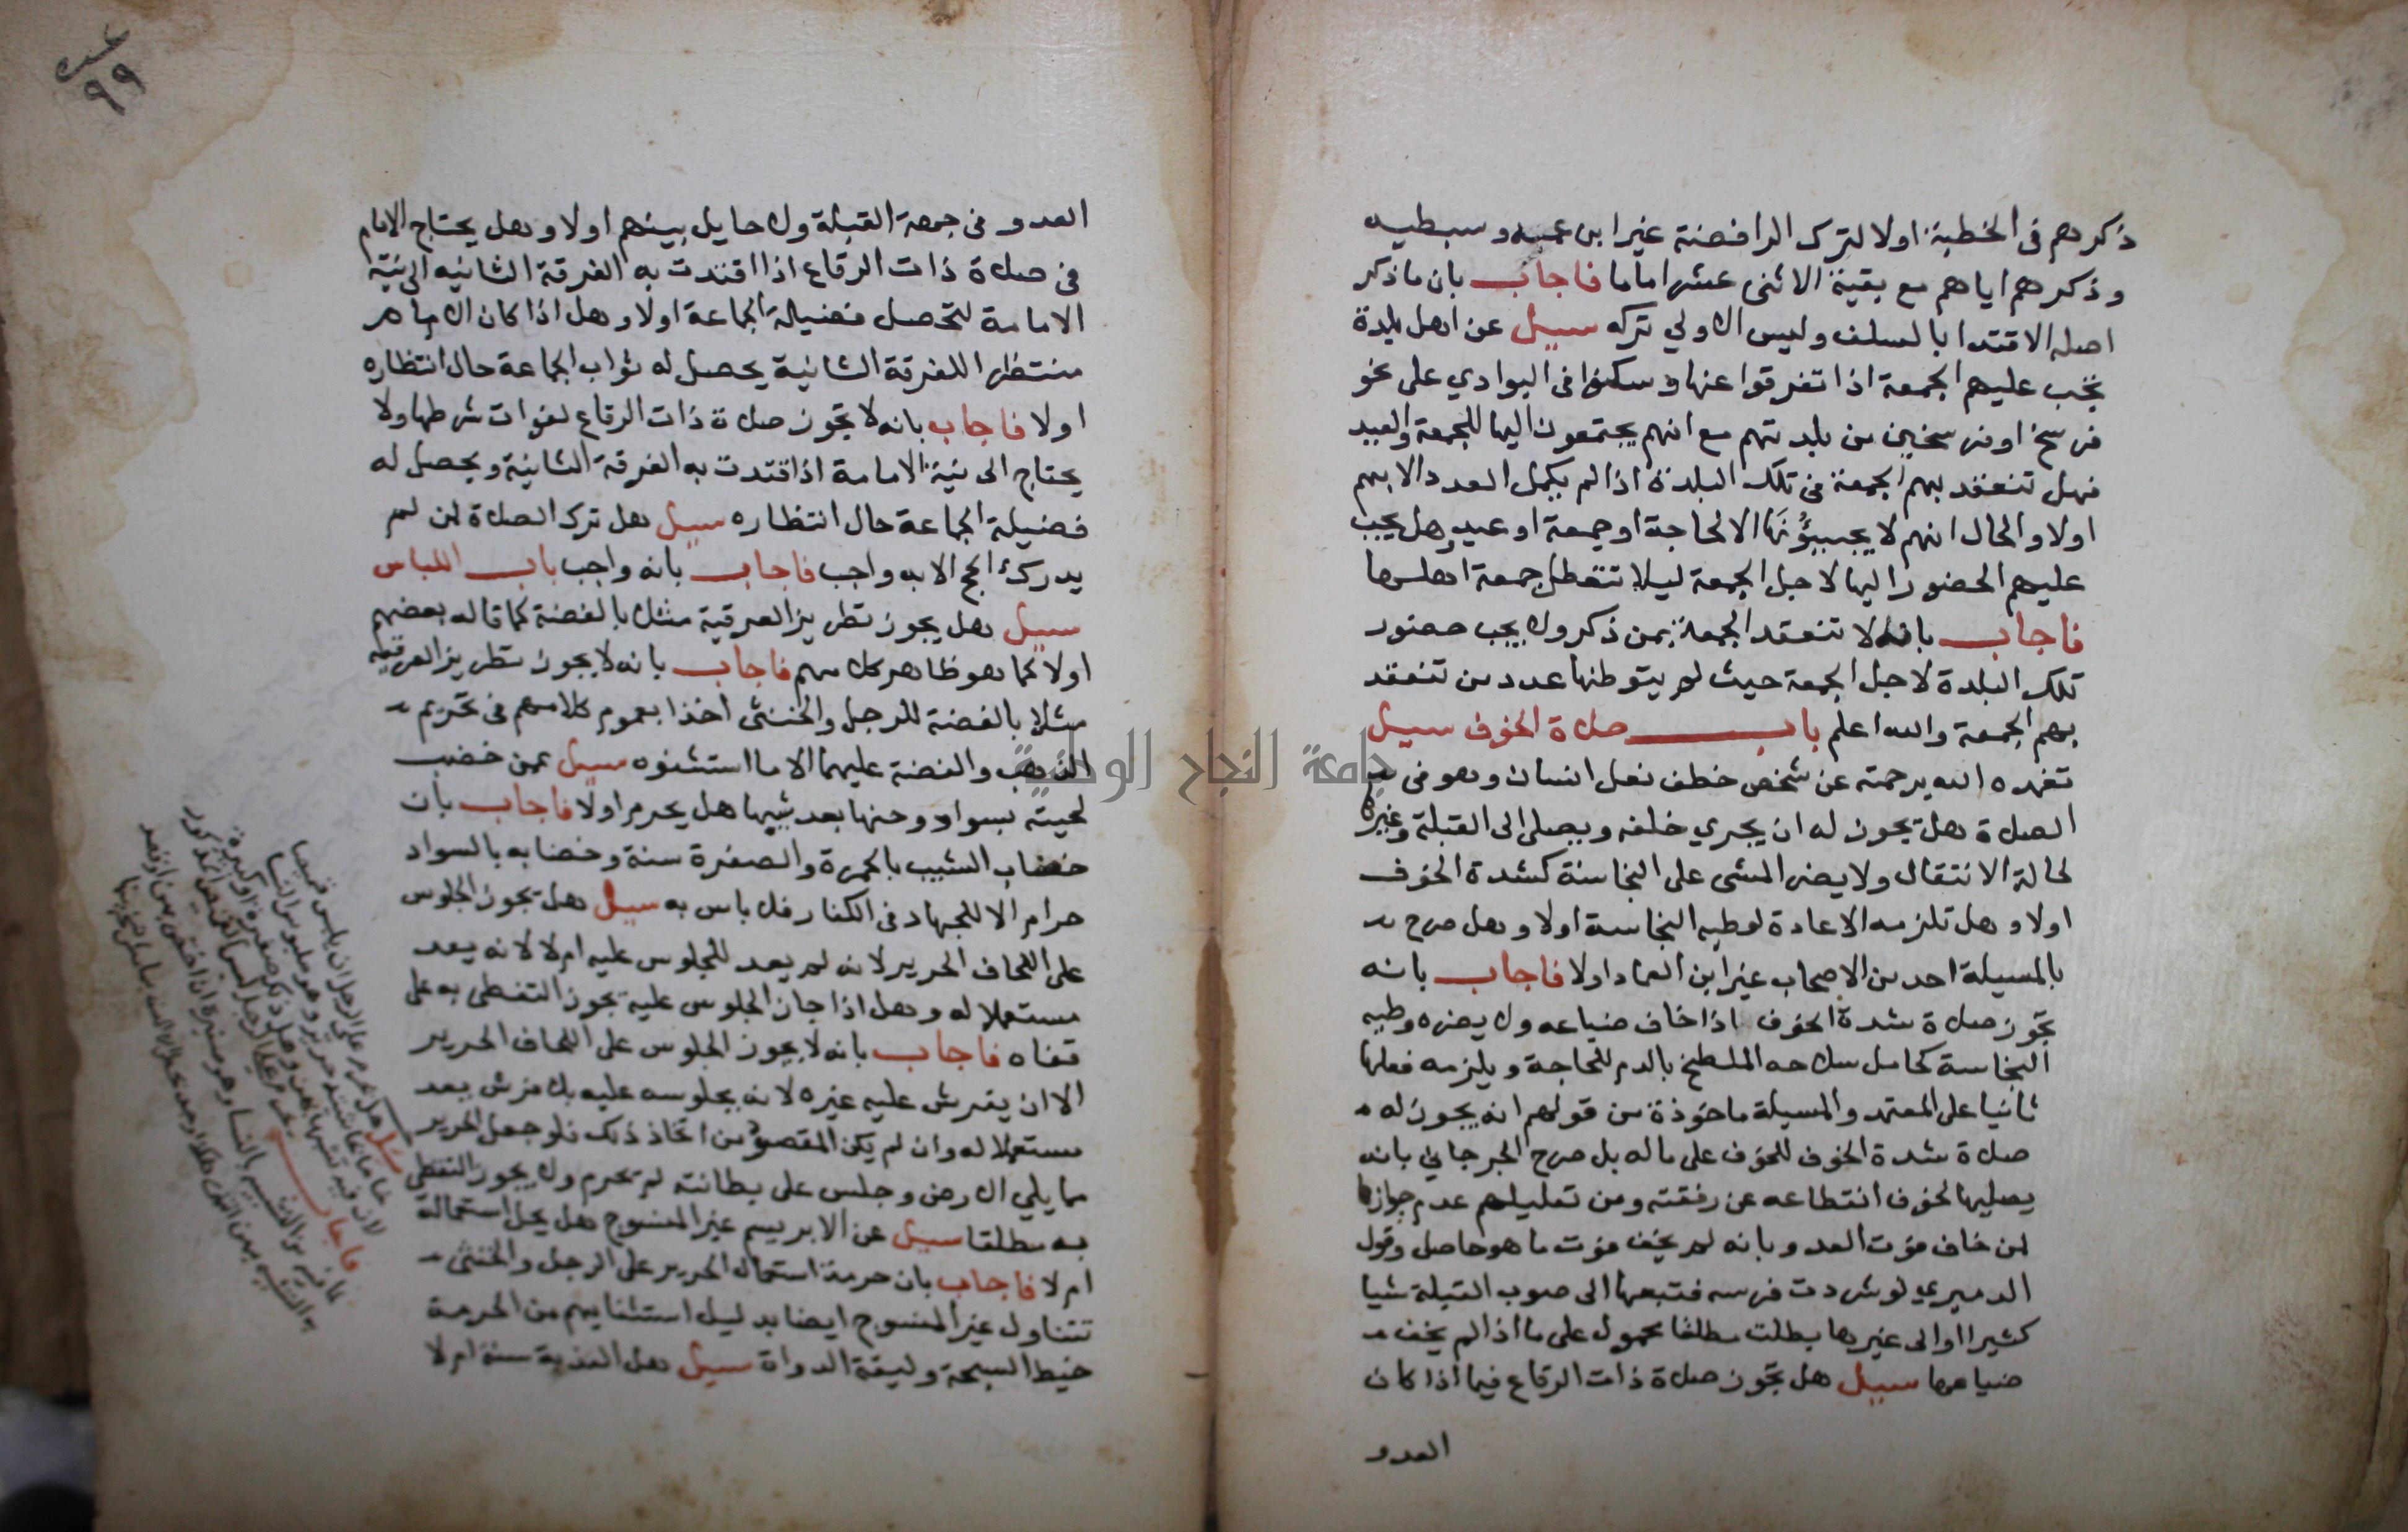 ذكرهم فى الخطبة اولا لترك الرافضة غير ابن عمه وسبطيه
وذكرهم اياهم مع بقية الاثنى عشر اماما فاجاب بان ما ذكر
اصله الاقتدا بالسلف وليس الاولي تركه سيل عن اهل بلدة
تجب عليهم الجمعة اذا تفرقوا عنها وسكنوا فى البوادي على نحو
فرسخ او فرسخين من بلدتهم مع انهم يجتمعون اليها للجمعة والعيد
فهل تنعقد بهم الجمعة فى تلك البلدة اذا لم يكمل العدد الا بهم
اولا والحال انهم لا يجيئونها الا لحاجة او جمعة او عيد وهل يجب
عليهم الحضور اليها لاجل الجمعة ليلا تتعطل جمعة اهلها
فاجاب بانه لا تنعقد الجمعة بمن ذكر ولا يجب حضور
تلك البلدة لاجل الجمعة حيث لم يتوطنها عدد من تنعقد
بهم الجمعة والله اعلم باب صلاة الخوف سيل
تغمده الله برحمته عن شخص خطف نعل انسان وهو فى
الصلاة هل يجوز له ان يجري خلفه ويصلى الى القبلة وغيرها
لحالة الانتقال ولا يضر المشى على النجاسة كشدة الخوف
اولا وهل تلزمه الاعادة لوطيه النجاسة اولا وهل صرح
بالمسيلة احد من الاصحاب غير ابن العماد اولا فاجاب بانه
تجوز صلاة شدة الخوف اذا خاف ضياعه ولا يضره وطيه
النجاسة كحامل سلاحه الملطخ بالدم للحاجة ويلزمه فعلها
ثانيا على المعتمد والمسيلة ماخوذة من قولهم انه يجوز له
صلاة شدة الخوف للخوف على ماله بل صرح الجرجاني بانه
يصليها لخوف انقطاعه عن رفقته ومن تعليلهم عدم جوازها
لمن خاف فوت العدو بانه لم يخف فوت ما هو حاصل وقول
الدميري لو شردت فرسه فتبعها الى صوب القبلة شيا
كثيرا او الى غيرها بطلت مطلقا محمول على ما اذا لم يخف
ضياعها سيل هل تجوز صلاة ذات الرقاع فيما اذا كان
العدو
٩٩
العدو فى جهة القبلة ولا حايل بينهم اولا وهل يحتاج الامام
فى صلاة ذات الرقاع اذا اقتدت به الفرقة الثانيه الى نية
الامامة لتحصل فضيلة الجماعة اولا وهل اذا كان الامام
منتظرا للفرقة الثانية يحصل له ثواب الجماعة حال انتظاره
اولا فاجاب بانه لا تجوز صلاة ذات الرقاع لفوات شرطها ولا
يحتاج الى نية الامامة اذا اقتدت به الفرقة الثانية ويحصل له
فضيلة الجماعة حال انتظاره سيل هل ترك الصلاة لمن لم
يدرك الحج الا به واجب فاجاب بانه واجب باب اللباس
سيل هل يجوز تطريز العرقية مثلا بالفضة كما قاله بعضهم
اولا كما هو ظاهر كلامهم فاجاب بانه لا يجوز تطريز العرقيه
مثلا بالفضة للرجل والخنثى اخذا بعموم كلامهم فى تحريم
الذهب والفضة عليهما الا ما استثنوه سيل عمن خضب
لحيته بسواد وحنها بعد شيبها هل يحرم اولا فاجاب بان
خضاب الشيب بالحمرة والصفرة سنة وخضابه بالسواد
حرام الا للجهاد فى الكفار فلا باس به سيل هل تجوز الجلوس
على اللحاف الحرير لانه لم يعد للجلوس عليه ام لا لانه يعد
مستعملا له وهل اذا جاز الجلوس عليه يجوز التغطى به على
قفاه فاجاب بانه لا يجوز الجلوس على اللحاف الحرير
الا ان يفرش عليه غيره لانه بجلوسه عليه بلا فرش يعد
مستعملا له وان لم يكن المقصود من اتخاذ ذلك فلو جعل الحرير
مما يلي الارض وجلس على بطانته لم تحرم ولا يجوز التغطى
به مطلقا سيل عن الابريسم غير المنسوج هل يحل استعماله
ام لا فاجاب بان حرمة استعمال الحرير على الرجل والخنثى
تتناول غير المنسوج ايضا بدليل استثنايهم من الحرمة
خيط السبحة وليقة الدواة سيل هل العذبة سنة ام لا
سيل هل يحرم على الرجل ان يلبس قميصا
فاجاب
جامعة النجاح الوطنية